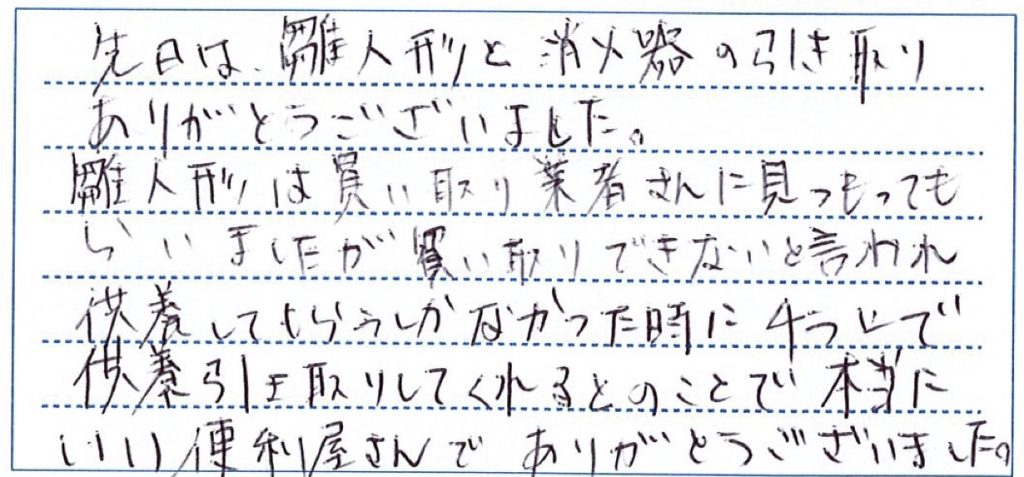 先日は、雛人形と消火器の引き取り
ありがとうございました。
雛人形は買い取り業者さんに見つもっても
らいましたが買い取りできないと言われ
供養してもらうしかなかった時にチラシで
供養引き取りしてくれるとのことで本当に
いい便利屋さんでありがとうございました。